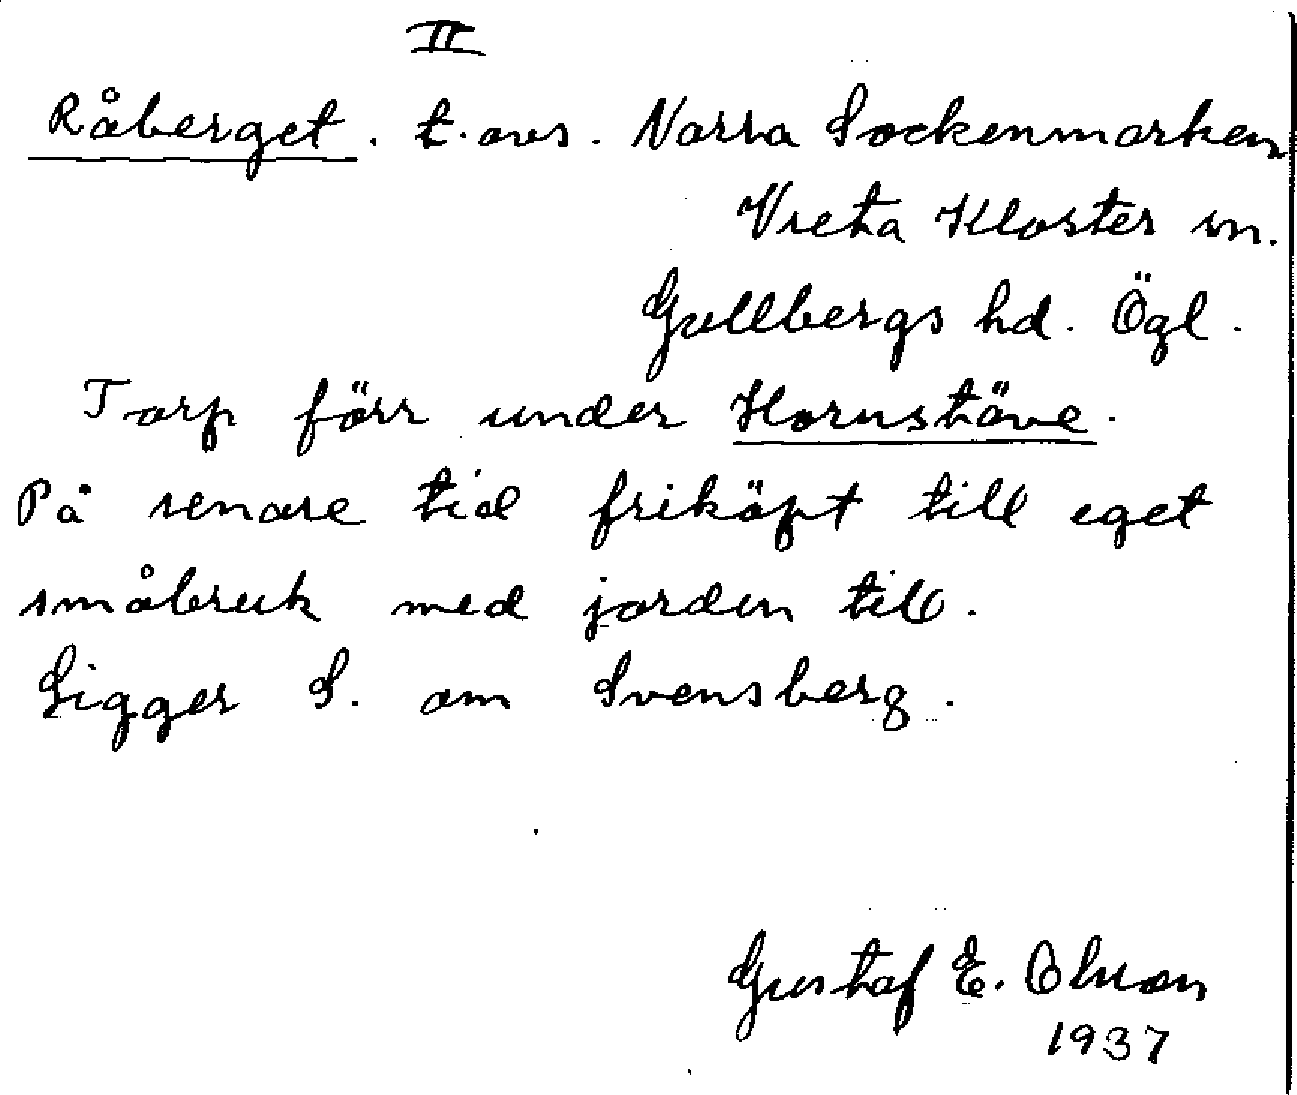 II
Råberget. t. avs. Norra Sockenmarken
Vreta Kloster sn.
Gullbergs hd. Ögl.
Torp förr under Hornstäve.
På senare tid friköpt till eget
småbruk med jorden till.
Ligger S. om Svensberg.
Gustaf E. Olsson
1937